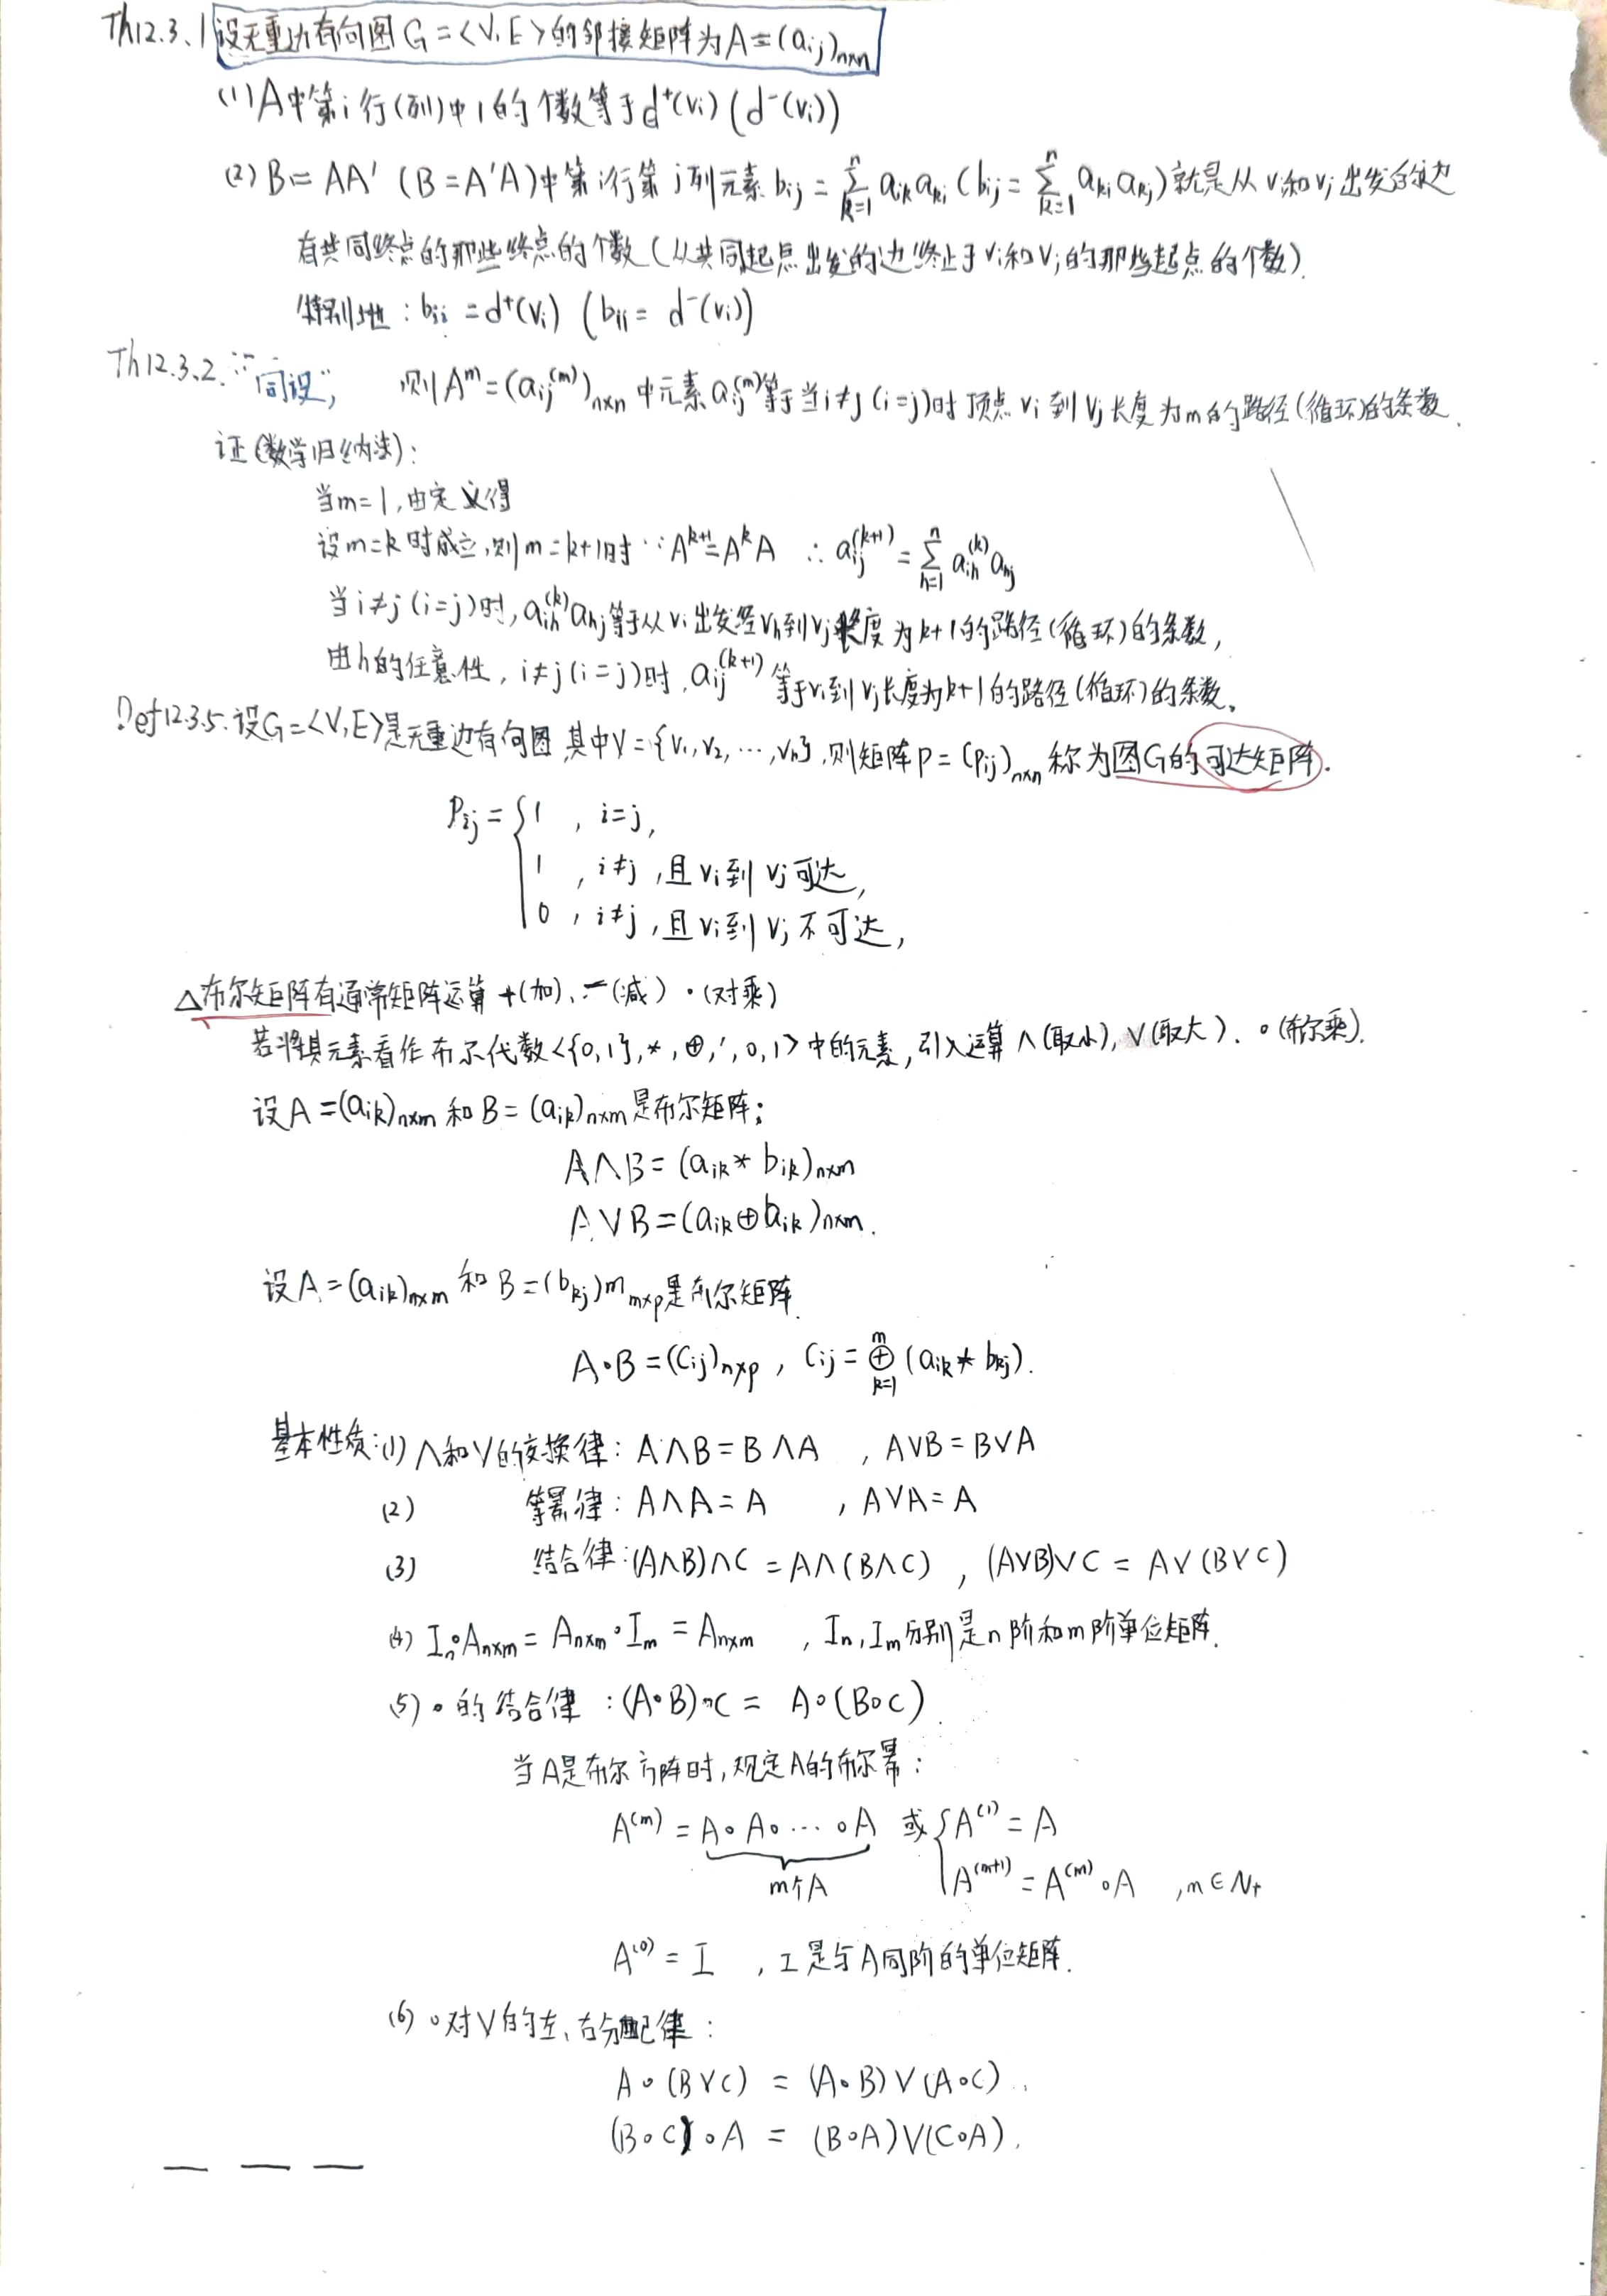 Th12.3.1 设无重边有向图 G=<V,E>的邻接矩阵为A=(aij)n×n
(1) A中第i行(列)中1的个数等于d⁺(vi) (d⁻(vi))
(2) B=AA' (B=A'A)中第i行第j列元素 bij=∑ⁿₖ₌₁ aik aki (bij=∑ⁿₖ₌₁ aki akj)就是从vi和vj出发的边
有共同终点的那些终点的个数(从共同起点出发的边终止于vi和vj的那些起点的个数).
特别地:bii=d⁺(vi) (bii=d⁻(vi))
Th12.3.2. "同设", 则Aᵐ=(aij⁽ᵐ⁾)n×n中元素aij⁽ᵐ⁾等于当i≠j(i=j)时顶点vi到vj长度为m的路径(循环)的条数.
证(数学归纳法):
当m=1,由定义得
设m=k时成立,则m=k+1时 ∵Aᵏ⁺¹=AᵏA ∴aij⁽ᵏ⁺¹⁾=∑ⁿₕ₌₁ aih⁽ᵏ⁾ahj
当i≠j(i=j)时,aih⁽ᵏ⁾ahj等于从vi出发经vh到vj长度为k+1的路径(循环)的条数,
由h的任意性,i≠j(i=j)时,aij⁽ᵏ⁺¹⁾等于vi到vj长度为k+1的路径(循环)的条数。
Def12.3.5.设G=<V,E>是无重边有向图,其中V={v1,v2,⋯,vn},则矩阵P=(Pij)n×n称为图G的可达矩阵.
Pij={1 , i=j,
1 , i≠j,且vi到vj可达,
0 , i≠j,且vi到vj不可达,
△布尔矩阵有通常矩阵运算+(加)、-(减) ·(对乘)
若将其元素看作布尔代数<{0,1},*,⊕,′,0,1>中的元素,引入运算∧(取小),∨(取大).∘(布尔乘).
设A=(aik)n×m和B=(aik)n×m是布尔矩阵;
A∧B=(aik*bik)n×m
A∨B=(aik⊕bik)n×m.
设A=(aik)n×m和B=(bkj)m m×p是布尔矩阵.
A∘B=(Cij)n×p , Cij=⊕ᵐₖ₌₁(aik*bkj).
基本性质:(1)∧和∨的交换律:A∧B=B∧A ,A∨B=B∨A
(2) 等幂律:A∧A=A ,A∨A=A
(3) 结合律:(A∧B)∧C=A∧(B∧C) ,(A∨B)∨C=A∨(B∨C)
(4) In∘An×m=An×m∘Im=An×m ,In,Im分别是n阶和m阶单位矩阵.
(5) ∘的结合律:(A∘B)∘C=A∘(B∘C).
当A是布尔方阵时,规定A的布尔幂:
A⁽ᵐ⁾=A∘A∘⋯∘A 或{A⁽¹⁾=A
m个A A⁽ᵐ⁺¹⁾=A⁽ᵐ⁾∘A ,m∈N₊
A⁽⁰⁾=I ,I是与A同阶的单位矩阵.
(6) ∘对∨的左、右分配律:
A∘(B∨C)=(A∘B)∨(A∘C).
(B∘C)∘A=(B∘A)∨(C∘A).